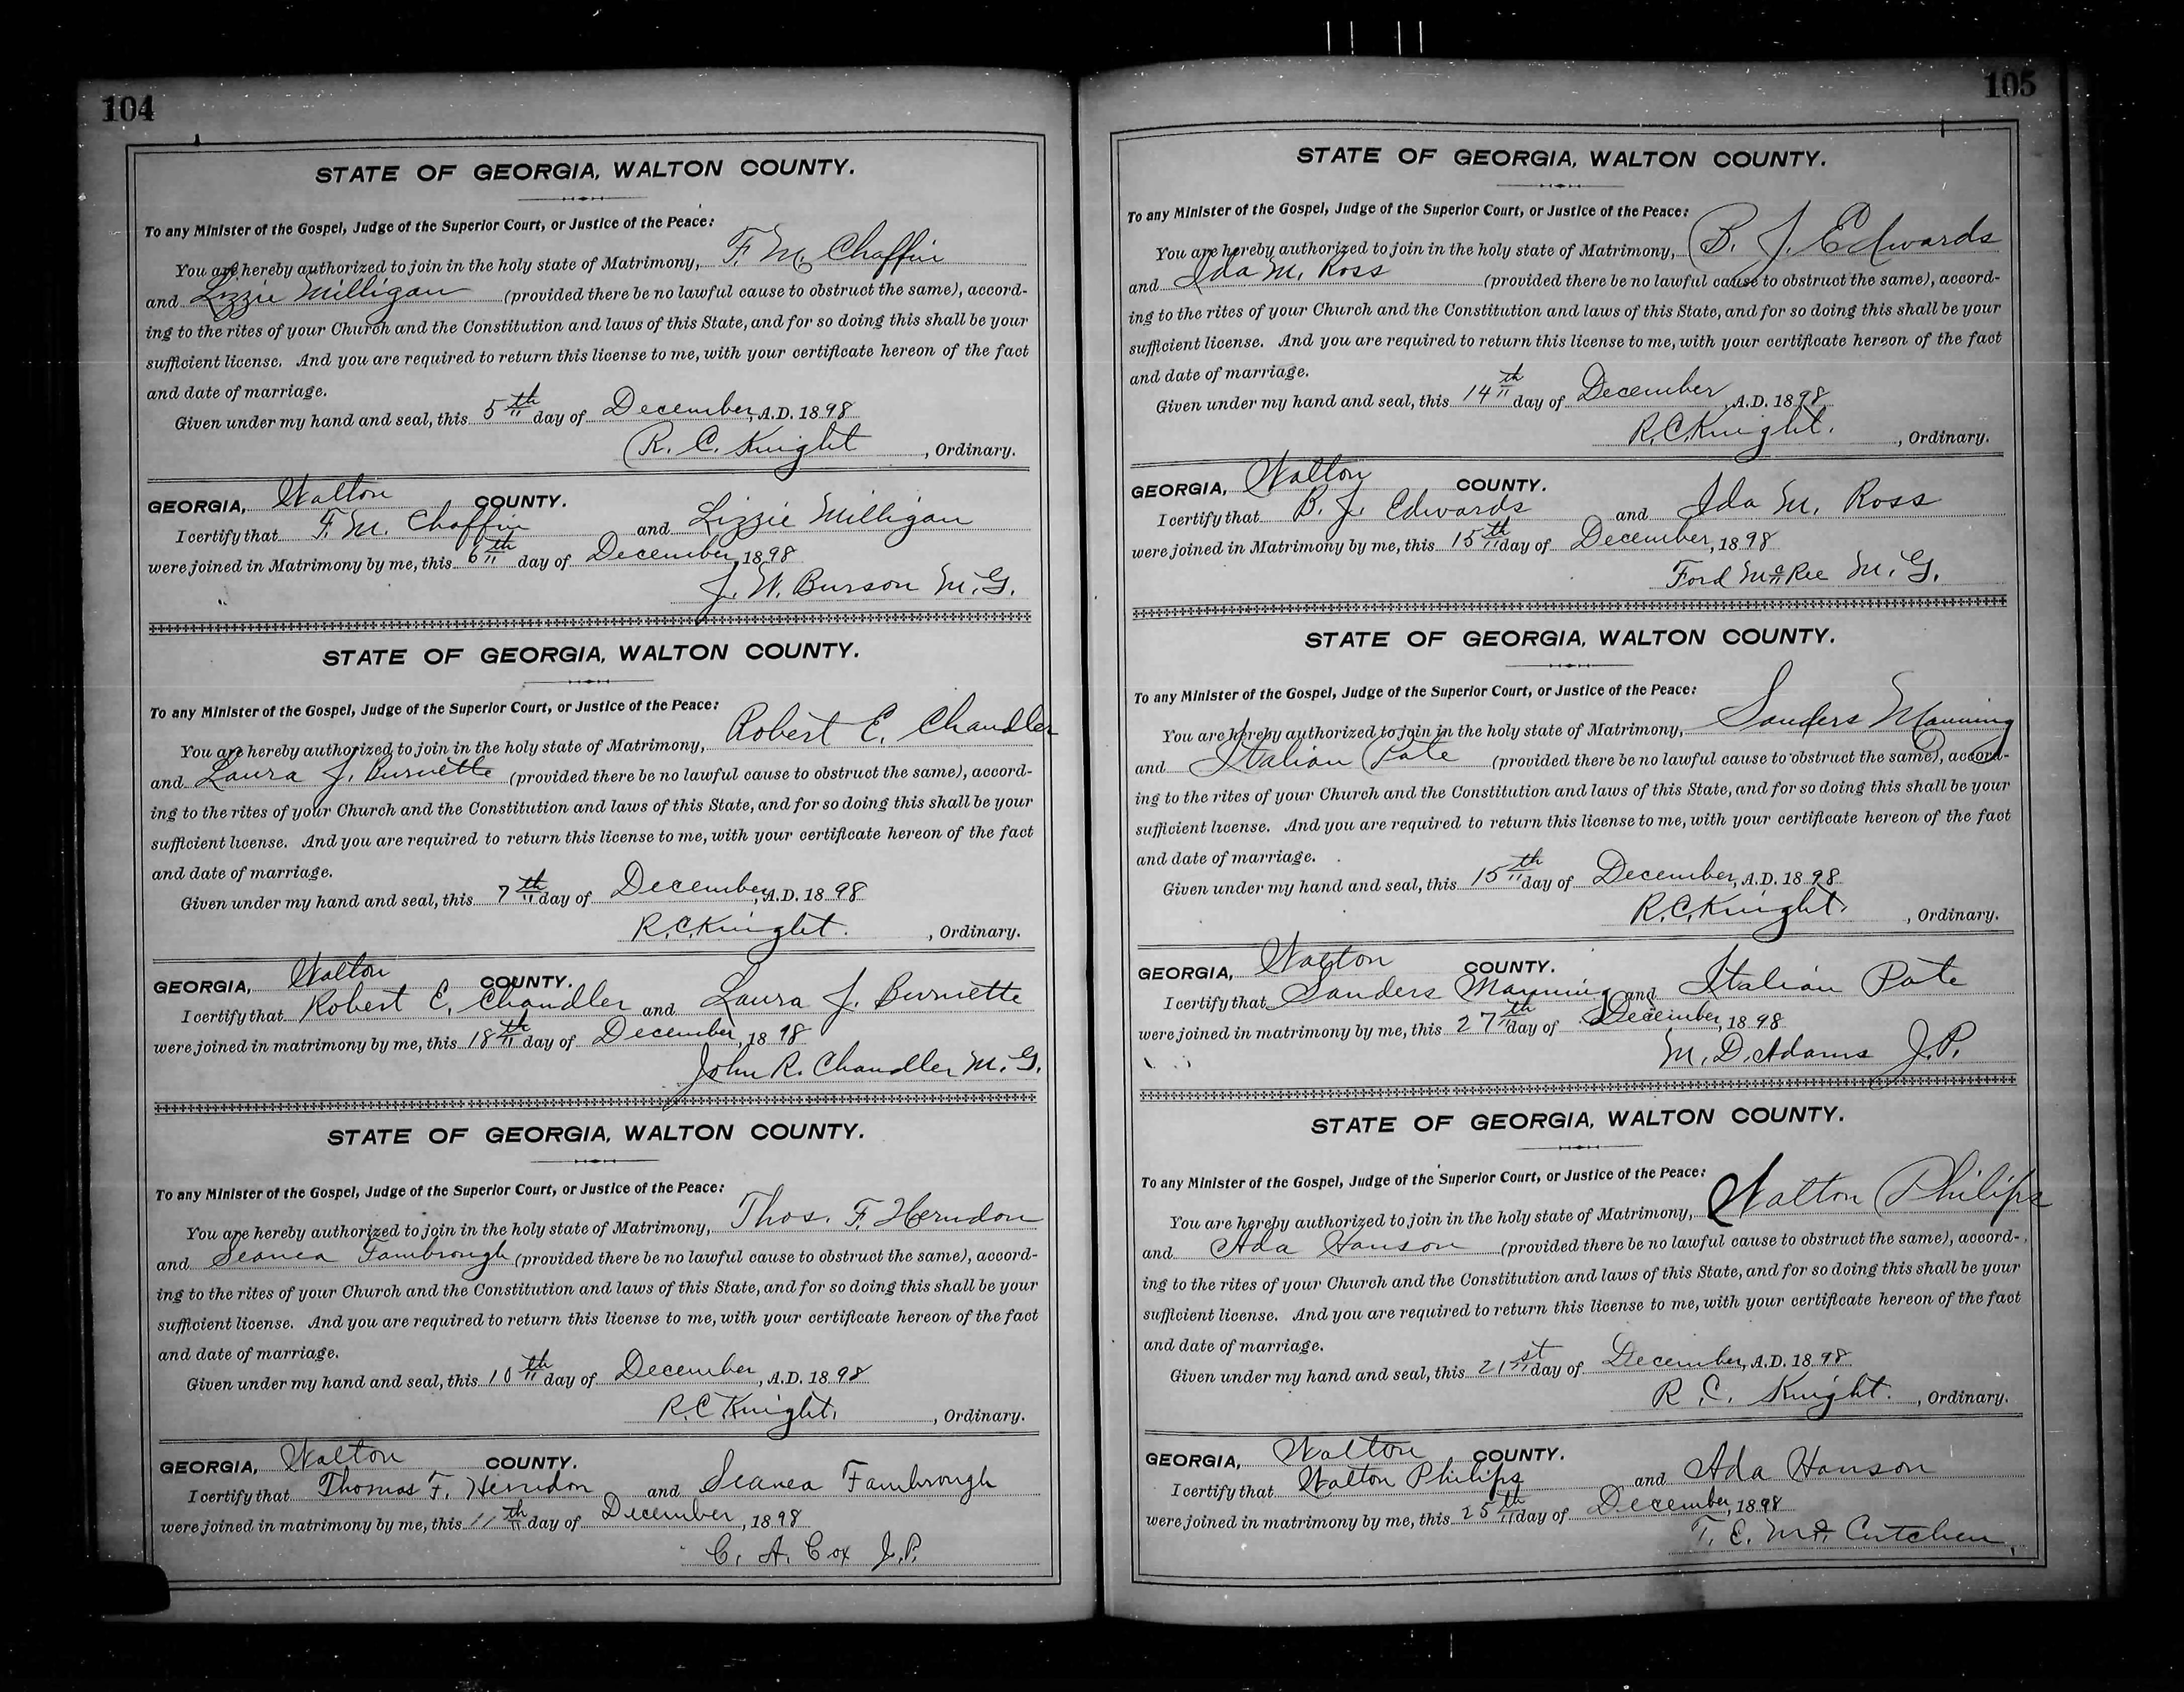 104
STATE OF GEORGIA, WALTON COUNTY.
To any Minister of the Gospel, Judge of the Superior Court, or Justice of the Peace:
You are hereby authorized to join in the holy state of Matrimony, F. M. Chaffin
and Lizzie Milligan (provided there be no lawful cause to obstruct the same), accord-
ing to the rites of your Church and the Constitution and laws of this State, and for so doing this shall be your
sufficient license. And you are required to return this license to me, with your certificate hereon of the fact
and date of marriage.
Given under my hand and seal, this 5th day of December, A.D. 1898
R. C. Knight, Ordinary.
GEORGIA, Walton COUNTY.
I certify that F. M. Chaffin and Lizzie Milligan
were joined in Matrimony by me, this 6th day of December, 1898
J. W. Burson M.G.
STATE OF GEORGIA, WALTON COUNTY.
To any Minister of the Gospel, Judge of the Superior Court, or Justice of the Peace:
You are hereby authorized to join in the holy state of Matrimony, Robert E. Chandler
and Laura J. Burnette (provided there be no lawful cause to obstruct the same), accord-
ing to the rites of your Church and the Constitution and laws of this State, and for so doing this shall be your
sufficient license. And you are required to return this license to me, with your certificate hereon of the fact
and date of marriage.
Given under my hand and seal, this 7th day of December, A.D. 1898
R.C. Knight. , Ordinary.
GEORGIA, Walton COUNTY.
I certify that Robert E. Chandler and Laura J. Burnette
were joined in matrimony by me, this 18th day of December, 1898
John R. Chandler M.G.
STATE OF GEORGIA, WALTON COUNTY.
To any Minister of the Gospel, Judge of the Superior Court, or Justice of the Peace:
You are hereby authorized to join in the holy state of Matrimony, Thos. F. Herndon
and Seanea Fambrough (provided there be no lawful cause to obstruct the same), accord-
ing to the rites of your Church and the Constitution and laws of this State, and for so doing this shall be your
sufficient license. And you are required to return this license to me, with your certificate hereon of the fact
and date of marriage.
Given under my hand and seal, this 10th day of December, A.D. 1898
R.C. Knight. , Ordinary.
GEORGIA, Walton COUNTY.
I certify that Thomas F. Herndon and Seanea Fambrough
were joined in matrimony by me, this 11th day of December, 1898
C. A. Cox J.P.
105
STATE OF GEORGIA, WALTON COUNTY.
To any Minister of the Gospel, Judge of the Superior Court, or Justice of the Peace:
You are hereby authorized to join in the holy state of Matrimony, B. J. Edwards
and Ida M. Ross (provided there be no lawful cause to obstruct the same), accord-
ing to the rites of your Church and the Constitution and laws of this State, and for so doing this shall be your
sufficient license. And you are required to return this license to me, with your certificate hereon of the fact
and date of marriage.
Given under my hand and seal, this 14th day of December, A.D. 1898
R.C. Knight. , Ordinary.
GEORGIA, Walton COUNTY.
I certify that B. J. Edwards and Ida M. Ross
were joined in Matrimony by me, this 15th day of December, 1898
Ford McRee M.G.
STATE OF GEORGIA, WALTON COUNTY.
To any Minister of the Gospel, Judge of the Superior Court, or Justice of the Peace:
You are hereby authorized to join in the holy state of Matrimony, Sanders Manning
and Italian Pate (provided there be no lawful cause to obstruct the same), accord-
ing to the rites of your Church and the Constitution and laws of this State, and for so doing this shall be your
sufficient license. And you are required to return this license to me, with your certificate hereon of the fact
and date of marriage.
Given under my hand and seal, this 15th day of December, A.D. 1898
R.C. Knight. , Ordinary.
GEORGIA, Walton COUNTY.
I certify that Sanders Manning and Italian Pate
were joined in matrimony by me, this 27th day of December, 1898
M. D. Adams J.P.
STATE OF GEORGIA, WALTON COUNTY.
To any Minister of the Gospel, Judge of the Superior Court, or Justice of the Peace:
You are hereby authorized to join in the holy state of Matrimony, Walton Philips
and Ada Hanson (provided there be no lawful cause to obstruct the same), accord-
ing to the rites of your Church and the Constitution and laws of this State, and for so doing this shall be your
sufficient license. And you are required to return this license to me, with your certificate hereon of the fact
and date of marriage.
Given under my hand and seal, this 21st day of December, A.D. 1898
R. C. Knight. , Ordinary.
GEORGIA, Walton COUNTY.
I certify that Walton Philips and Ada Hanson
were joined in matrimony by me, this 25th day of December, 1898
T. E. McCutchen